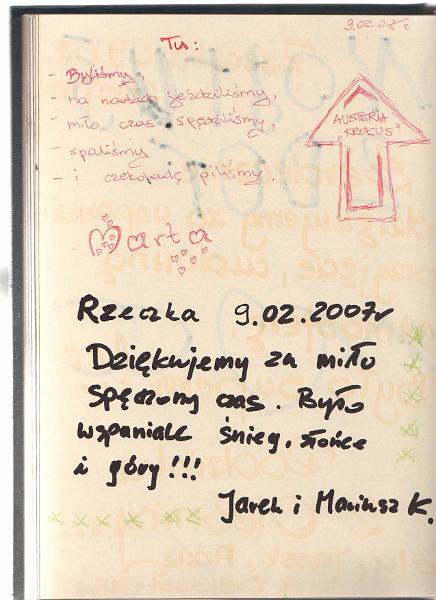 9.02.07r
Tu:
- Byliśmy
- na nartach jeździliśmy,
- miło czas spędziliśmy,
- spaliśmy
- i czekoladę piliśmy.
AUSTERIA
"KROCUS"
Marta
Rzeczka 9.02.2007r
Dziękujemy za miło
spędzony czas. Było
wspaniale śnieg, słońce
i góry!!!
Jarek i Mariusz K.